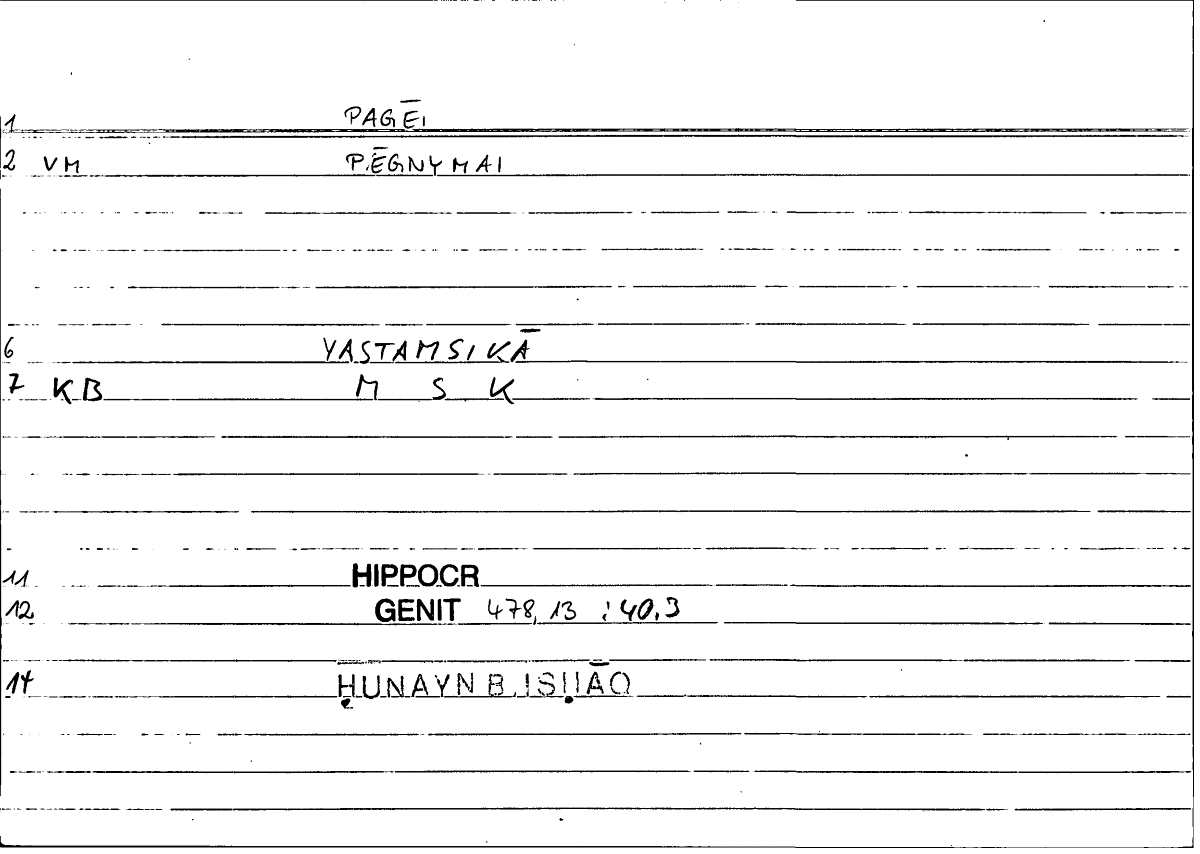 1 PAGĒI
2 VM PĒGNYMAI
6 YASTAMSIKĀ
7 KB M S K
11 HIPPOCR
12 GENIT 478,13 : 40.3
14 ḤUNAYN B.ISḤĀQ